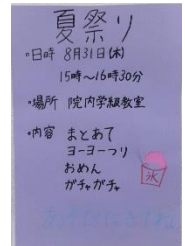 夏祭り
・日時 8月31日(木)
15時～16時30分
・場所 院内学級教室
・内容 まとあて
ヨーヨーつり
おめん
ガチャガチャ
氷